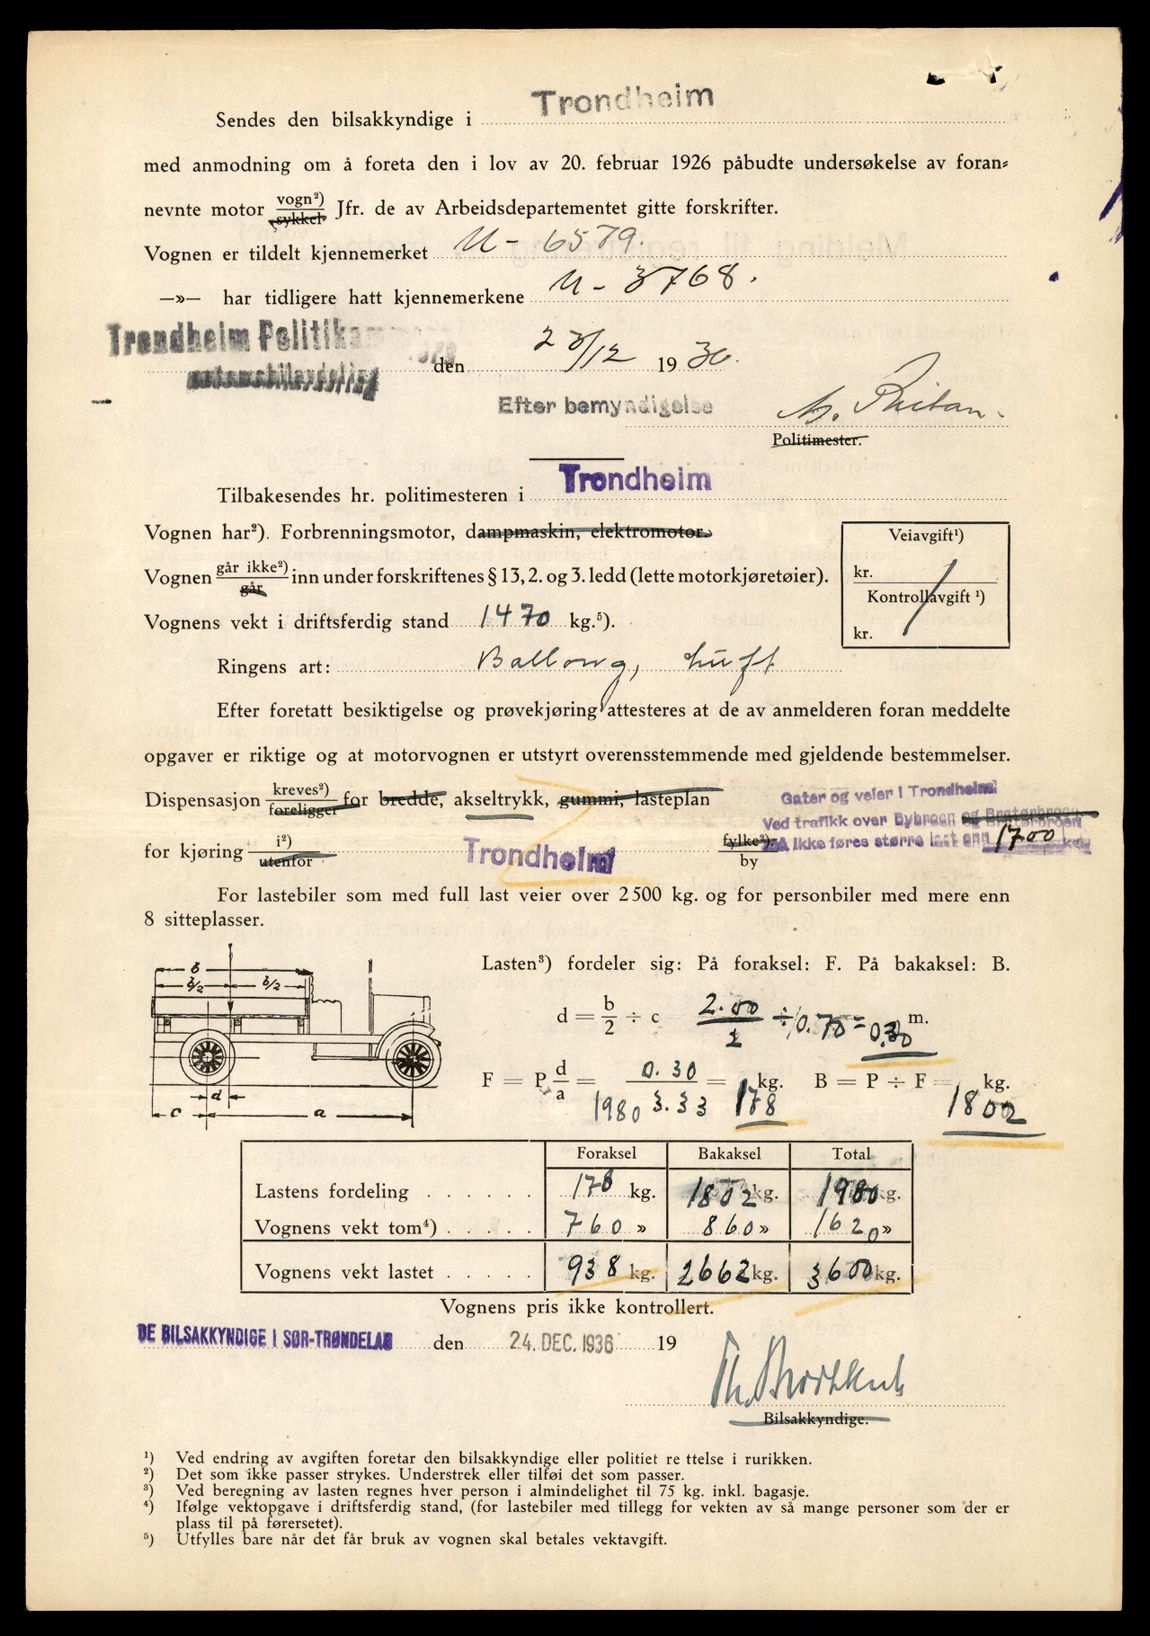 Sendes den bilsakkyndige i Trondheim
med anmodning om å foreta den i lov av 20. februar 1926 påbudte undersøkelse av foran-
nevnte motor vogn²) sykkel Jfr. de av Arbeidsdepartementet gitte forskrifter.
Vognen er tildelt kjennemerket U- 6579.
—»— har tidligere hatt kjennemerkene U- 3768.
Trondheim Politikammer
automobilavdeling den 23/12 1936.
Efter bemyndigelse
Politimester.
Tilbakesendes hr. politimesteren i Trondheim
Vognen har²). Forbrenningsmotor, dampmaskin, elektromotor.
Veiavgift¹)
Vognen går ikke²) går inn under forskriftenes § 13, 2. og 3. ledd (lette motorkjøretøier).
kr.
Kontrollavgift ¹)
kr.
Vognens vekt i driftsferdig stand 1470 kg.⁵).
Ringens art: Ballong, luft
Efter foretatt besiktigelse og prøvekjøring attesteres at de av anmelderen foran meddelte
opgaver er riktige og at motorvognen er utstyrt overensstemmende med gjeldende bestemmelser.
Dispensasjon kreves²) foreligger for bredde, akseltrykk, gummi, lasteplan
Gater og veier i Trondheim
Ved trafikk over Bybroen og Bratørbroen
må ikke føres større last enn 1700 kg.
for kjøring i²) utenfor Trondheim fylke²) by
For lastebiler som med full last veier over 2500 kg. og for personbiler med mere enn
8 sitteplasser.
b
b/2 b/2
d
c a
Lasten³) fordeler sig: På foraksel: F. På bakaksel: B.
d = b/2 ÷ c 2.00/2 ÷ 0.70 = 0.30 m.
F = P d/a = 1980 0.30/3.33 = 178 kg. B = P ÷ F = 1802 kg.
Foraksel Bakaksel Total
Lastens fordeling . . . . . . 178 kg. 1802 kg. 1980 kg.
Vognens vekt tom⁴) . . . . . 760 » 860 » 1620 »
Vognens vekt lastet . . . . . 938 kg. 2662 kg. 3600 kg.
Vognens pris ikke kontrollert.
DE BILSAKKYNDIGE I SØR-TRØNDELAG den 24. DEC. 1936 19
Bilsakkyndige.
¹) Ved endring av avgiften foretar den bilsakkyndige eller politiet re ttelse i rurikken.
²) Det som ikke passer strykes. Understrek eller tilføi det som passer.
³) Ved beregning av lasten regnes hver person i almindelighet til 75 kg. inkl. bagasje.
⁴) Ifølge vektopgave i driftsferdig stand, (for lastebiler med tillegg for vekten av så mange personer som der er
plass til på førersetet).
⁵) Utfylles bare når det får bruk av vognen skal betales vektavgift.